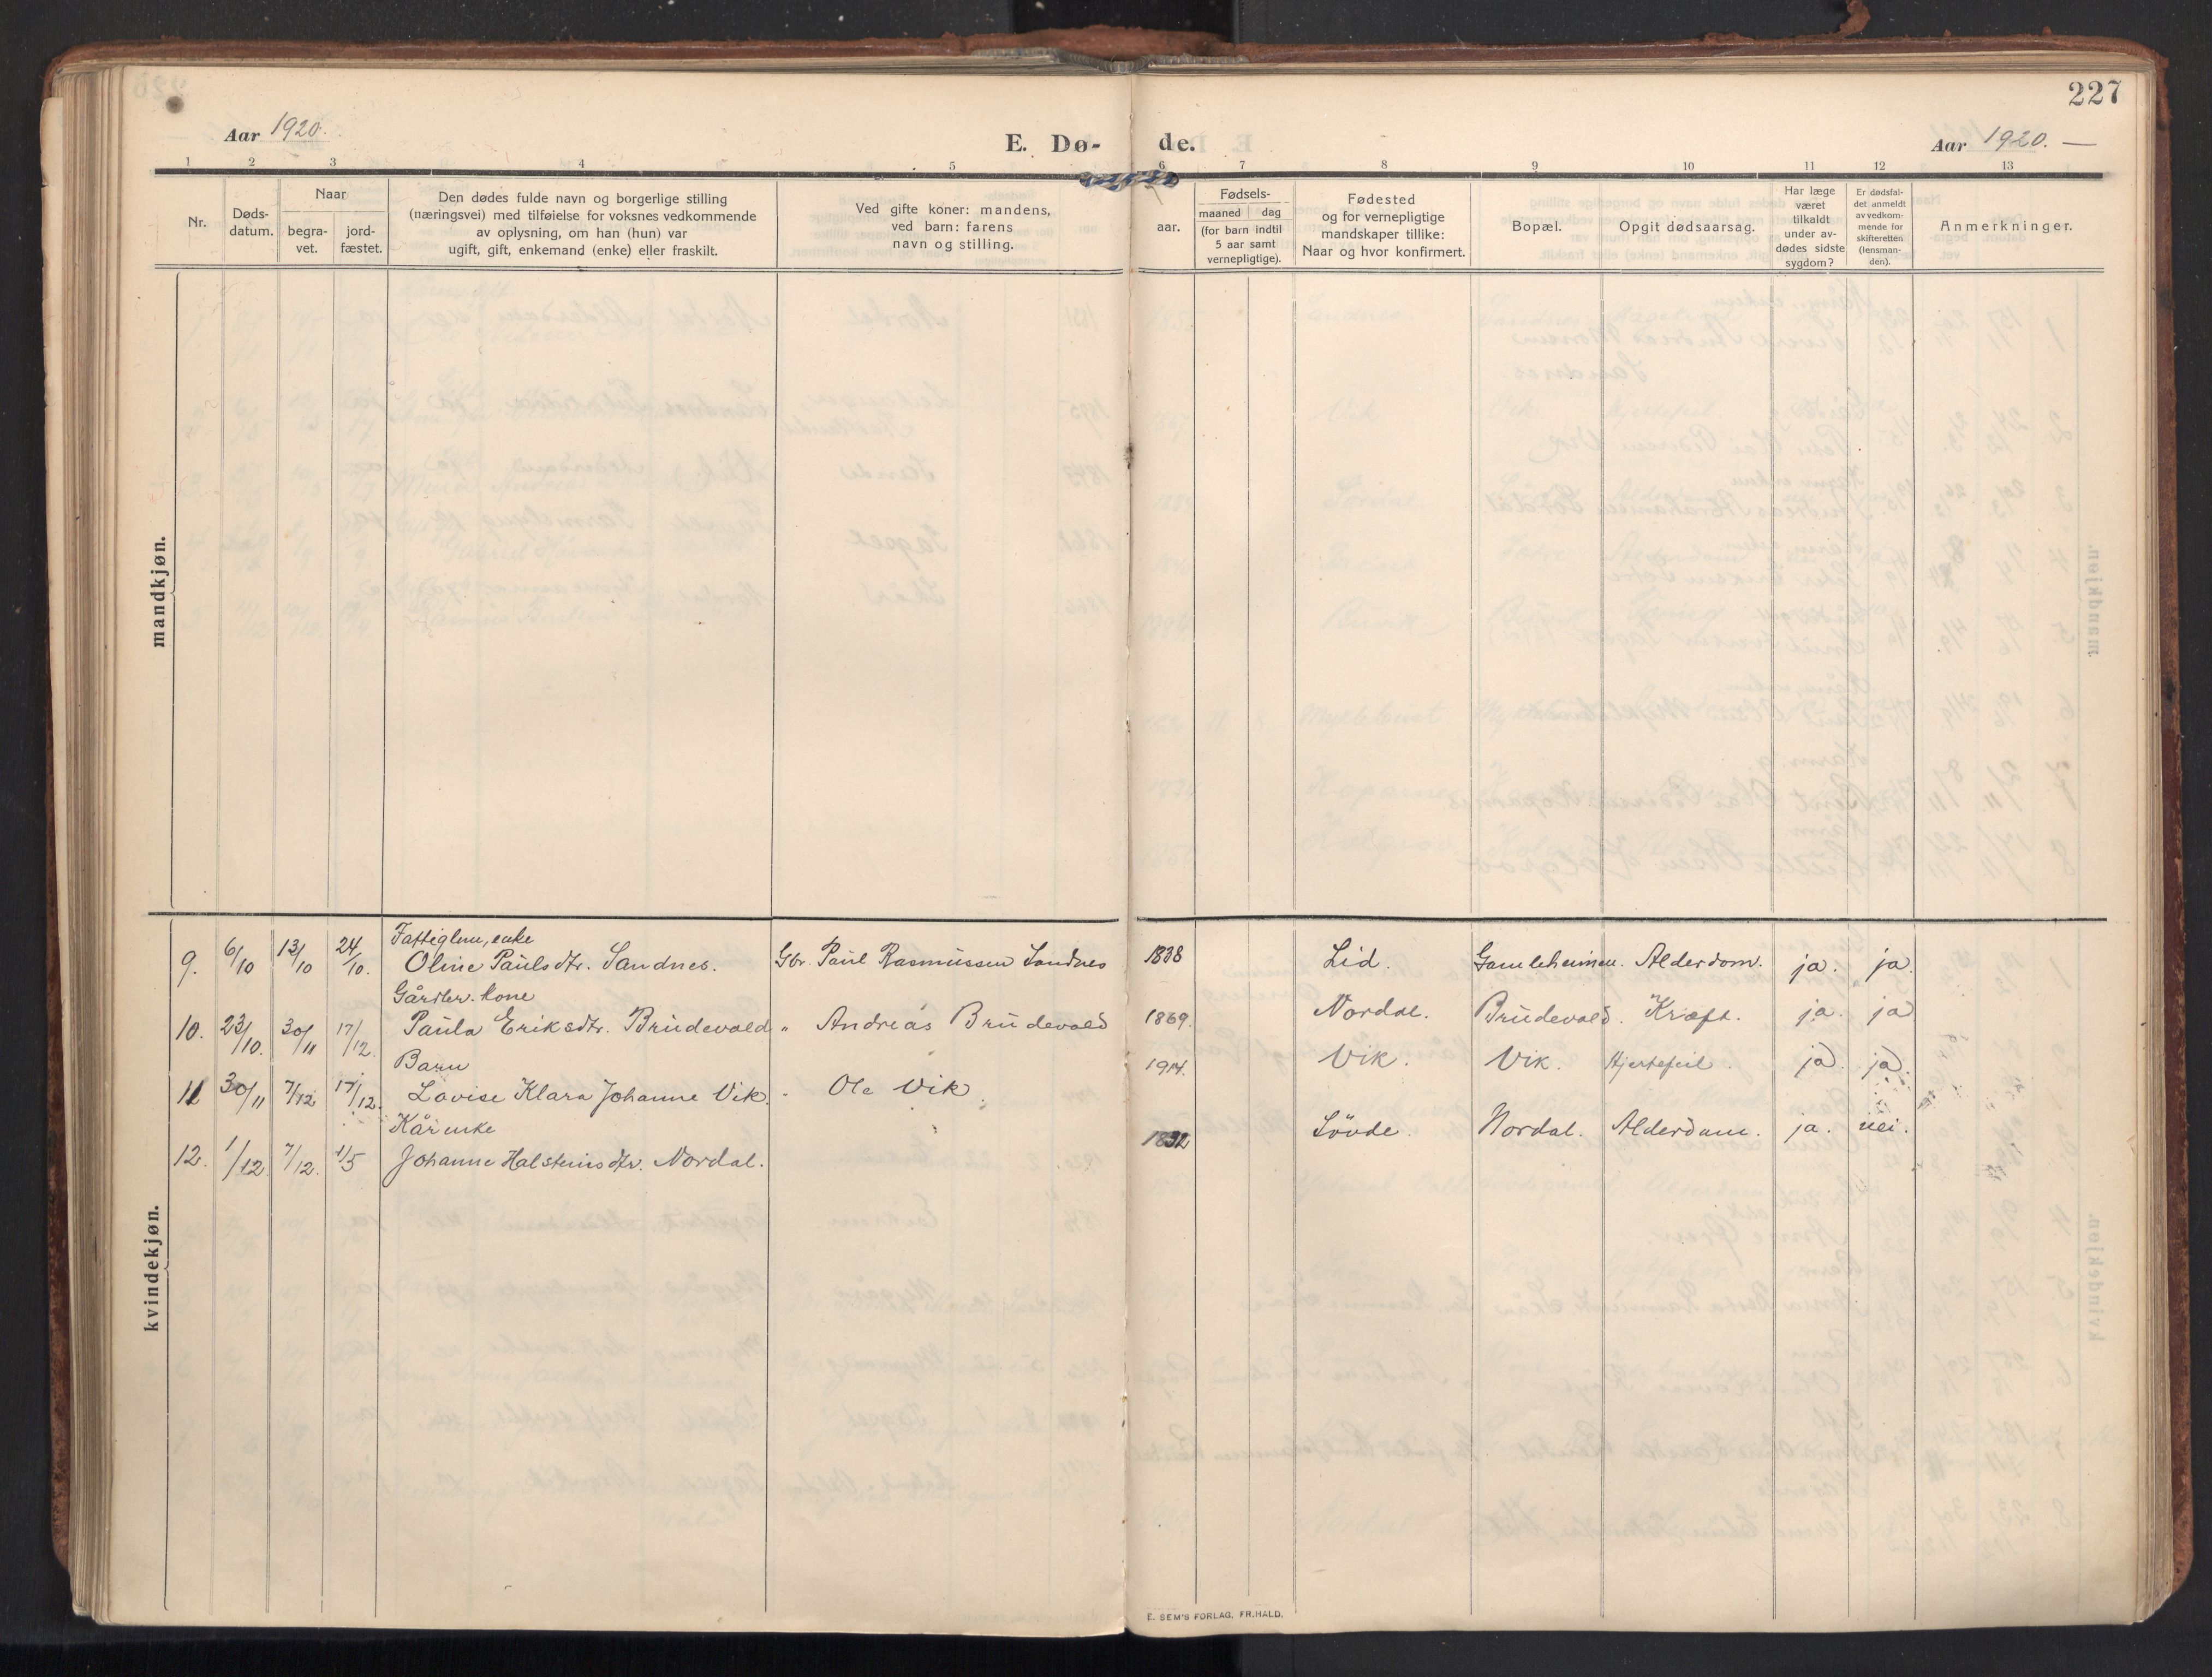 227
Aar 1920.
E. Dø-
de.
Aar 1920. —
1 2 3 4 5 6 7 8 9 10 11 12 13
Nr.
Døds-
datum.
Naar
begra-
vet.
jord-
fæstet.
Den dødes fulde navn og borgerlige stilling
(næringsvei) med tilføielse for voksnes vedkommende
av oplysning, om han (hun) var
ugift, gift, enkemand (enke) eller fraskilt.
Ved gifte koner: mandens,
ved barn: farens
navn og stilling.
Fødsels-
aar.
maaned dag
(for barn indtil
5 aar samt
vernepligtige).
Fødested
og for vernepligtige
mandskaper tillike:
Naar og hvor konfirmert.
Bopæl.
Opgit dødsaarsag.
Har læge
været
tilkaldt
under av-
dødes sidste
sygdom?
Er dødsfal-
det anmeldt
av vedkom-
mende for
skifteretten
(lensman-
den).
Anmerkninger.
mandkjøn.
kvindekjøn.
Fattiglem, enke
9. 6/10 13/10 24/10. Oline Paulsdtr. Sandnes. Gbr. Paul Rasmussen Sandnes 1838 Lid. Gamleheimen. Alderdom. ja. ja.
Gårdbr. kone
10. 23/10. 30/11 17/12. Paula Eriksdtr. Brudevold " Andreas Brudevold 1869. Nordal. Brudevold. Kræft. ja. ja
Barn
11 30/11 7/12 17/12. Lovise Klara Johanne Vik. " Ole Vik. 1914. Vik. Vik. Hjertefeil. ja. ja.
Kårenke
12. 1/12. 7/12. 1/5 Johanne Halsteinsdtr. Nordal. 1832 Lövde. Nordal. Alderdom. ja. nei.
E. SEM'S FORLAG, FR.HALD.